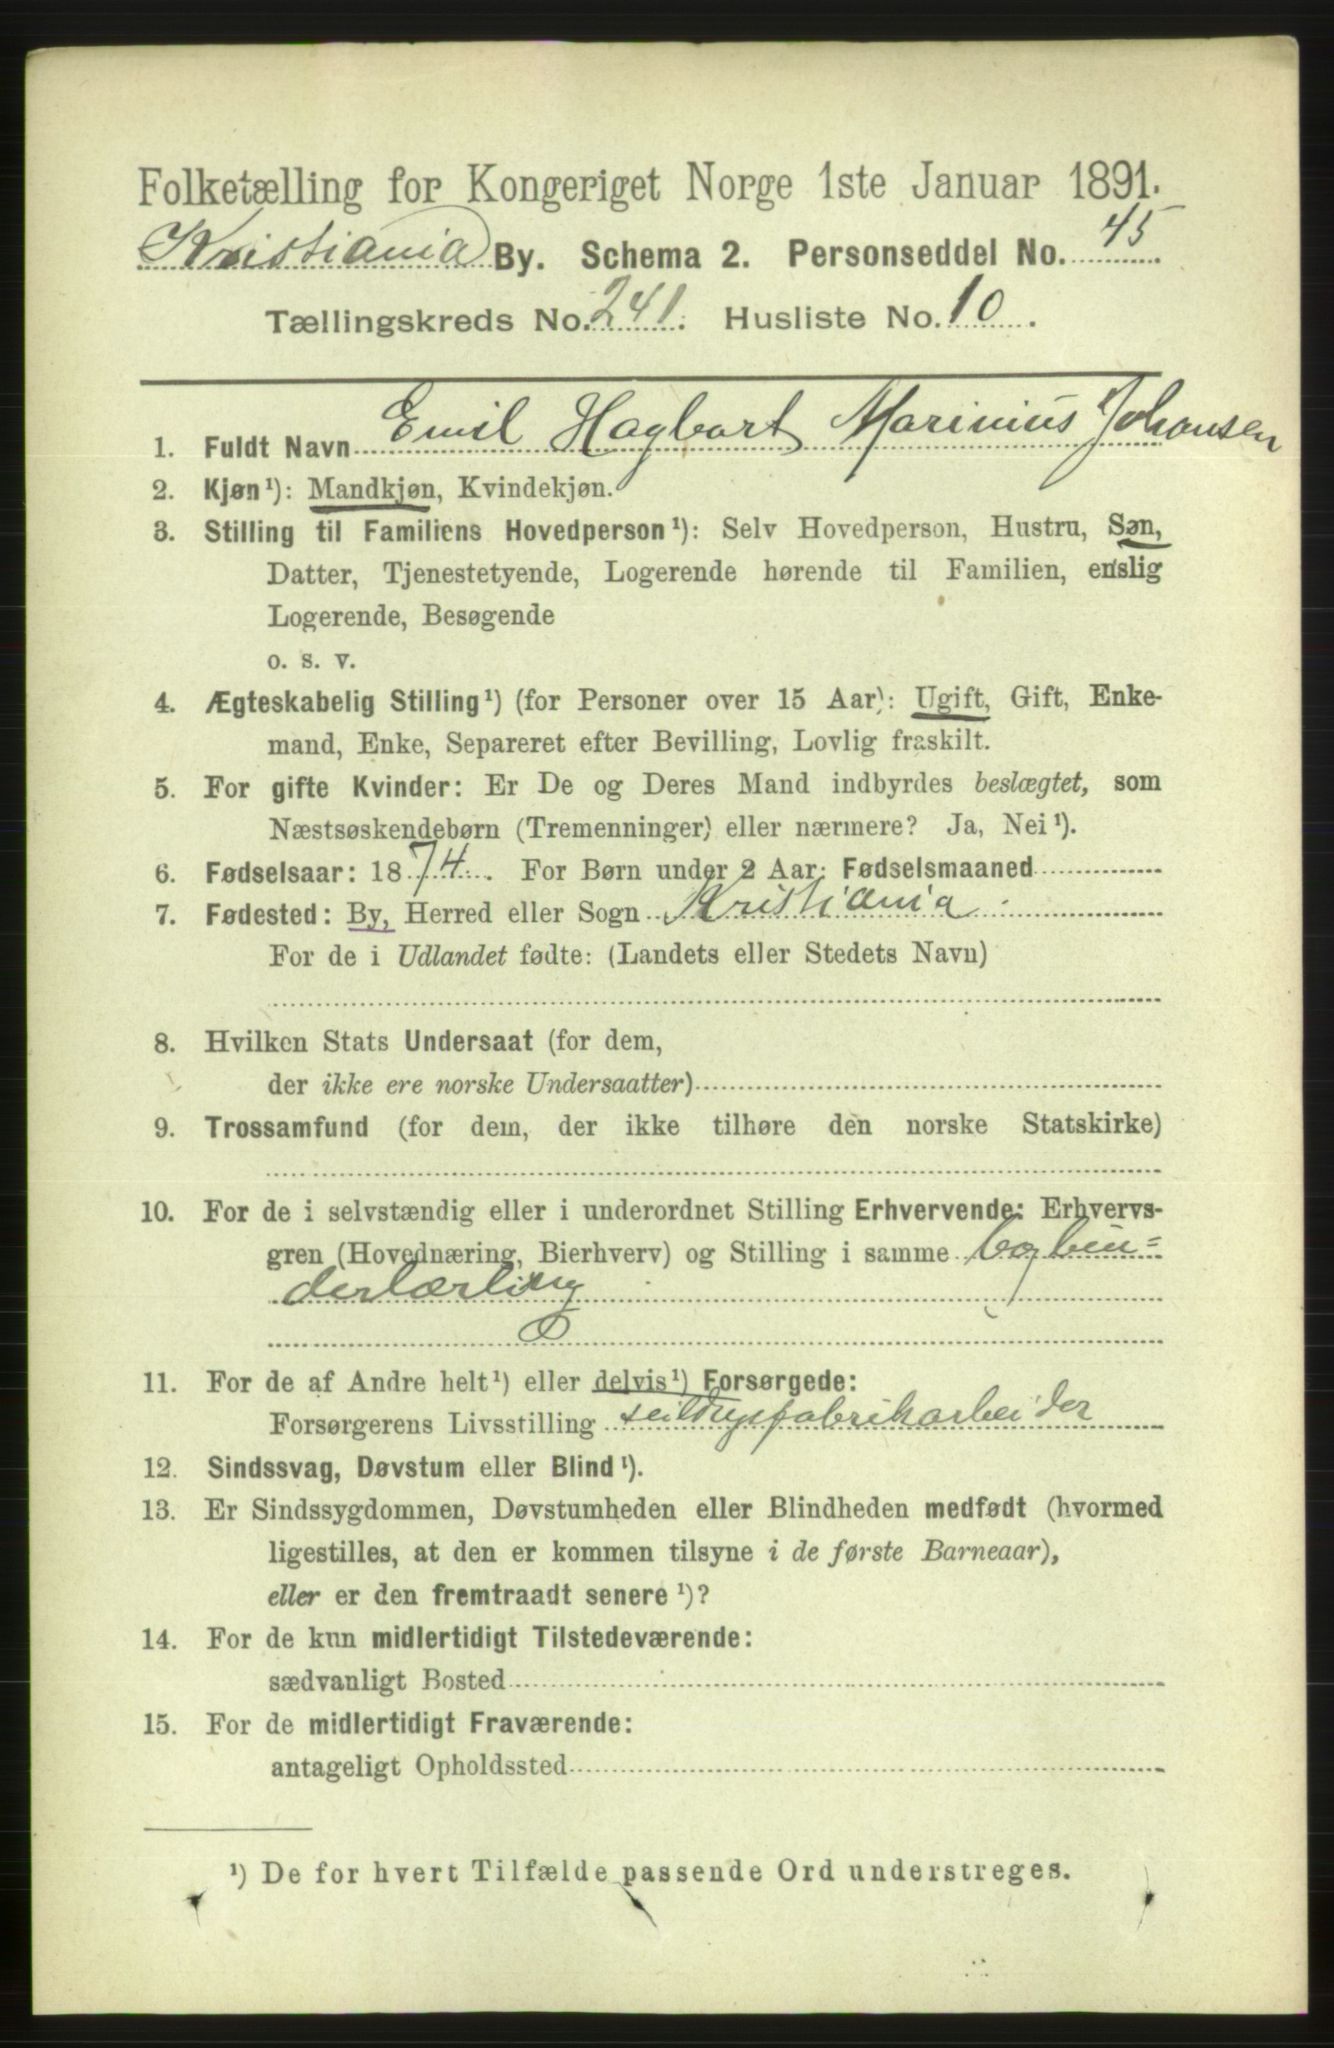 Folketælling for Kongeriget Norge 1ste Januar 1891.
Kristiania By. Schema 2. Personseddel No. 45
Tællingskreds No. 241. Husliste No. 10.
1. Fuldt Navn Emil Hagbart Marinius Johansen
2. Kjøn¹): Mandkjøn, Kvindekjøn.
3. Stilling til Familiens Hovedperson¹): Selv Hovedperson, Hustru, Søn,
Datter, Tjenestetyende, Logerende hørende til Familien, enslig
Logerende, Besøgende
o. s. v.
4. Ægteskabelig Stilling¹) (for Personer over 15 Aar): Ugift, Gift, Enke-
mand, Enke, Separeret efter Bevilling, Lovlig fraskilt.
5. For gifte Kvinder: Er De og Deres Mand indbyrdes beslægtet, som
Næstsøskendebørn (Tremenninger) eller nærmere? Ja, Nei¹).
6. Fødselsaar: 1874. For Børn under 2 Aar: Fødselsmaaned
7. Fødested: By, Herred eller Sogn Kristiania
For de i Udlandet fødte: (Landets eller Stedets Navn)
8. Hvilken Stats Undersaat (for dem,
der ikke ere norske Undersaatter)
9. Trossamfund (for dem, der ikke tilhøre den norske Statskirke)
10. For de i selvstændig eller i underordnet Stilling Erhvervende: Erhvervs-
gren (Hovednæring, Bierhverv) og Stilling i samme bogbin=
derlærling
11. For de af Andre helt¹) eller delvis¹) Forsørgede:
Forsørgerens Livsstilling seildugsfabrikarbeider
12. Sindssvag, Døvstum eller Blind¹).
13. Er Sindssygdommen, Døvstumheden eller Blindheden medfødt (hvormed
ligestilles, at den er kommen tilsyne i de første Barneaar),
eller er den fremtraadt senere¹)?
14. For de kun midlertidigt Tilstedeværende:
sædvanligt Bosted
15. For de midlertidigt Fraværende:
antageligt Opholdssted
¹) De for hvert Tilfælde passende Ord understreges.